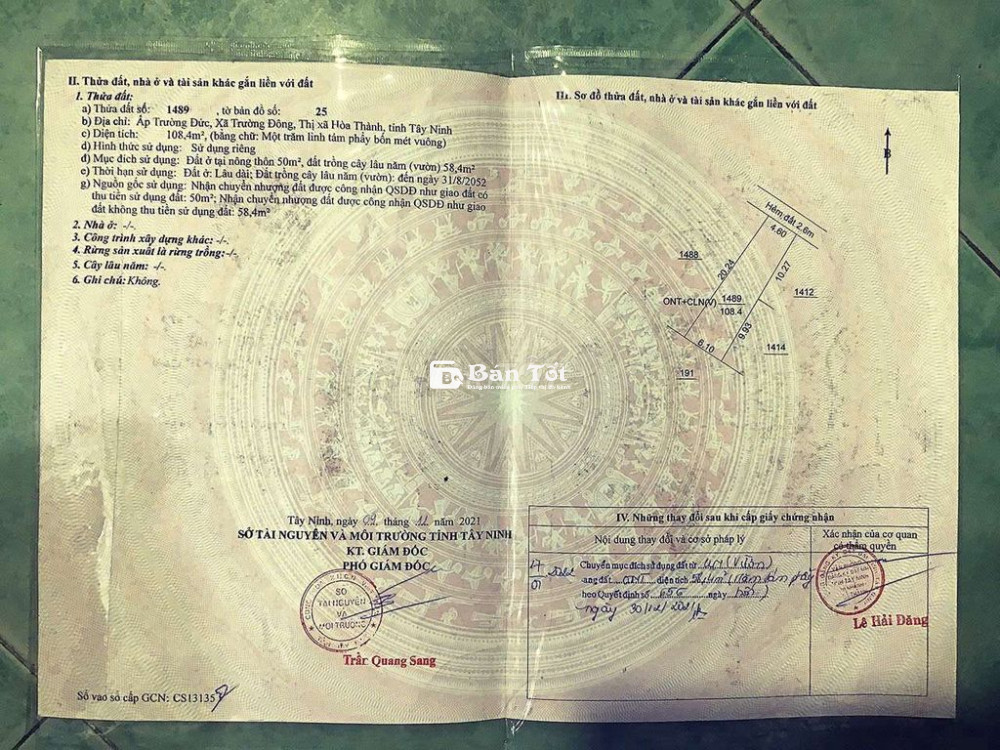 II. Thửa đất, nhà ở và tài sản khác gắn liền với đất
1. Thửa đất:
a) Thửa đất số: 1489 , tờ bản đồ số: 25
b) Địa chỉ: Ấp Trường Đức, Xã Trường Đông, Thị xã Hòa Thành, tỉnh Tây Ninh
c) Diện tích: 108,4m², (bằng chữ: Một trăm linh tám phẩy bốn mét vuông)
d) Hình thức sử dụng: Sử dụng riêng
đ) Mục đích sử dụng: Đất ở tại nông thôn 50m², đất trồng cây lâu năm (vườn) 58,4m²
e) Thời hạn sử dụng: Đất ở: Lâu dài; Đất trồng cây lâu năm (vườn): đến ngày 31/8/2052
g) Nguồn gốc sử dụng: Nhận chuyển nhượng đất được công nhận QSDĐ như giao đất có
thu tiền sử dụng đất: 50m²; Nhận chuyển nhượng đất được công nhận QSDĐ như giao
đất không thu tiền sử dụng đất: 58,4m²
2. Nhà ở: -/-
3. Công trình xây dựng khác: -/-
4. Rừng sản xuất là rừng trồng:-/-
5. Cây lâu năm: -/-
6. Ghi chú: Không.
III. Sơ đồ thửa đất, nhà ở và tài sản khác gắn liền với đất
B
Hẻm, đất 2.6m
4.60
1488
20.24
10.27
1412
ONT+CLN(V) 1489
108.4
9.93
6.10
1414
191
Bán Tốt
Tây Ninh, ngày tháng năm 2021
SỞ TÀI NGUYÊN VÀ MÔI TRƯỜNG TỈNH TÂY NINH
KT. GIÁM ĐỐC
PHÓ GIÁM ĐỐC
SỞ
TÀI NGUYÊN
VÀ
MÔI TRƯỜNG
Trần Quang Sang
Số vào sổ cấp GCN: CS13135
IV. Những thay đổi sau khi cấp giấy chứng nhận
Nội dung thay đổi và cơ sở pháp lý
Xác nhận của cơ quan
có thẩm quyền
Chuyển mục đích sử dụng đất từ (vườn)
ang đất diện tích
heo Quyết định số ngày
ngày 30/12/2021
Lê Hải Đăng